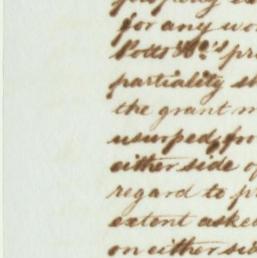 for any wo
partiality s
the grant m
usurped, fro
either side of
regard to p
extent asked
on either si